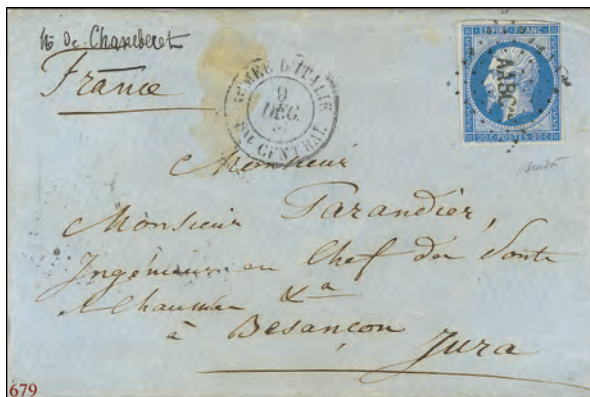 de Chamberet
France
ARMEE D'ITALIE
9
DEC.
CENTRAL
EMPIRE FRANC
AABC
20C POSTES 20C
Monsieur
Monsieur Parandier,
Ingénieur en Chef des Ponts
& Chaussées &a
à Besançon
Jura
679